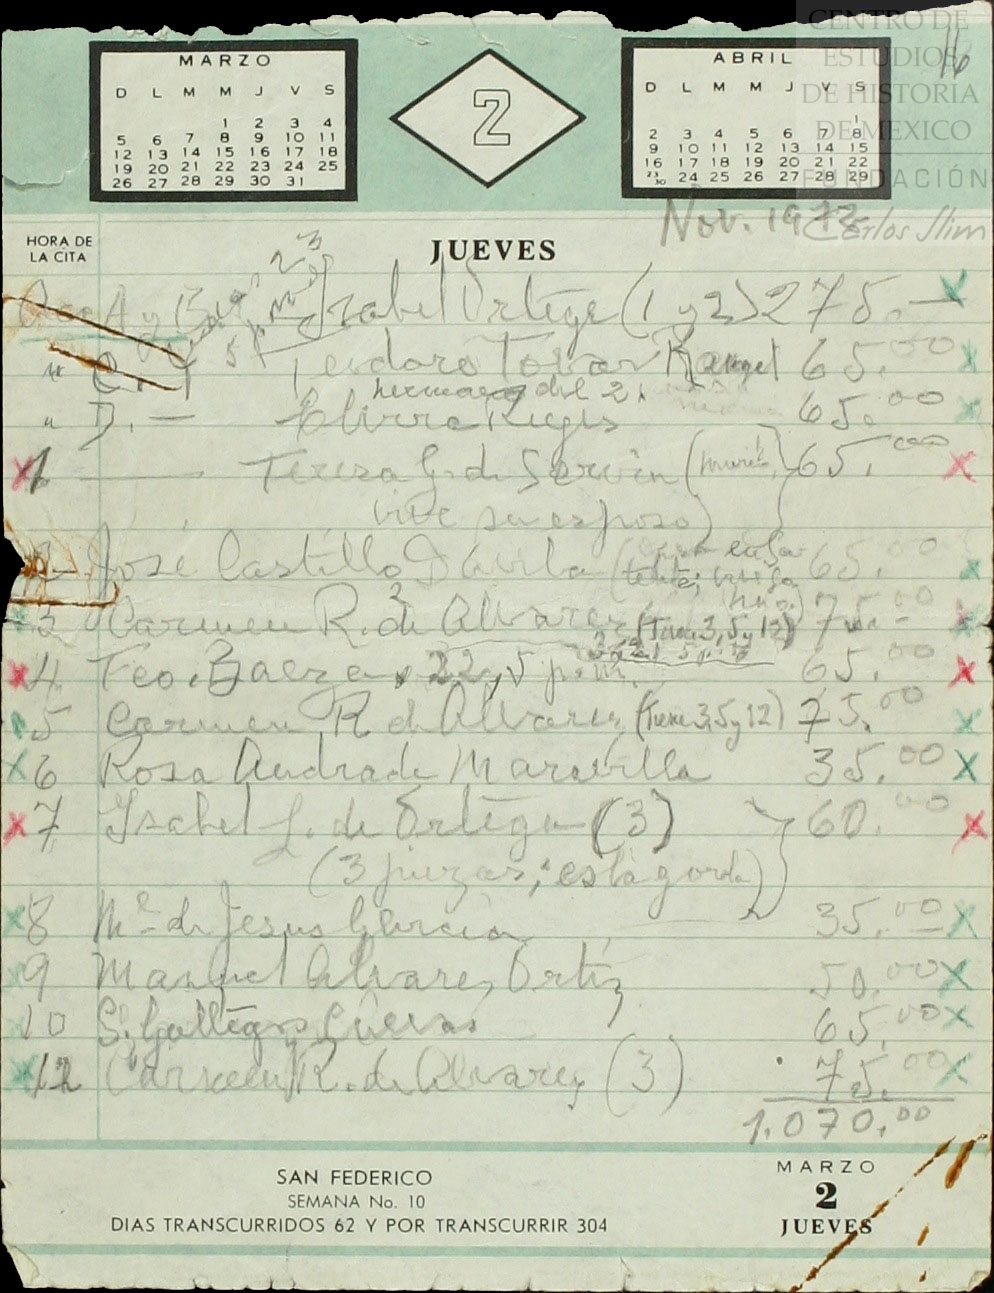 CENTRO DE
ESTUDIOS
DE HISTORIA
DE MEXICO
FUNDACIÓN
Carlos Slim
16
MARZO
D L M M J V S
1 2 3 4
5 6 7 8 9 10 11
12 13 14 15 16 17 18
19 20 21 22 23 24 25
26 27 28 29 30 31
2
ABRIL
D L M M J V S
1
2 3 4 5 6 7 8
9 10 11 12 13 14 15
16 17 18 19 20 21 22
23/30 24 25 26 27 28 29
Nov. 1972
HORA DE
LA CITA
JUEVES
Acc. A y B Isabel Ortega (1 y 2) 275.—
" C. Teodoro Tovar Rangel 65.00
hermano del 2.
" D. — Elvira Reyes 65.00
1 — Teresa G. de Servín (murió, 65.00
vive su esposo)
2 José Castillo Dávila 65.00
3 Carmen R. de Alvarez (Tiene 3, 5 y 12) 75.00
4 Feo. Baeza, 22, 5 p.m. 65.00
5 Carmen R. de Alvarez (Tiene 3, 5 y 12) 75.00
6 Rosa Andrade Maravilla 35.00
7 Isabel G. de Ortega (3) 60.00
(3 piezas; está gorda)
8 Ma. de Jesus García 35.00
9 Manuel Alvarez Ortíz 50.00
10 S. Gallegos Cuevas 65.00
12 Carmen R. de Alvarez (3) 75.00
1.070.00
SAN FEDERICO
SEMANA No. 10
DIAS TRANSCURRIDOS 62 Y POR TRANSCURRIR 304
MARZO
2
JUEVES